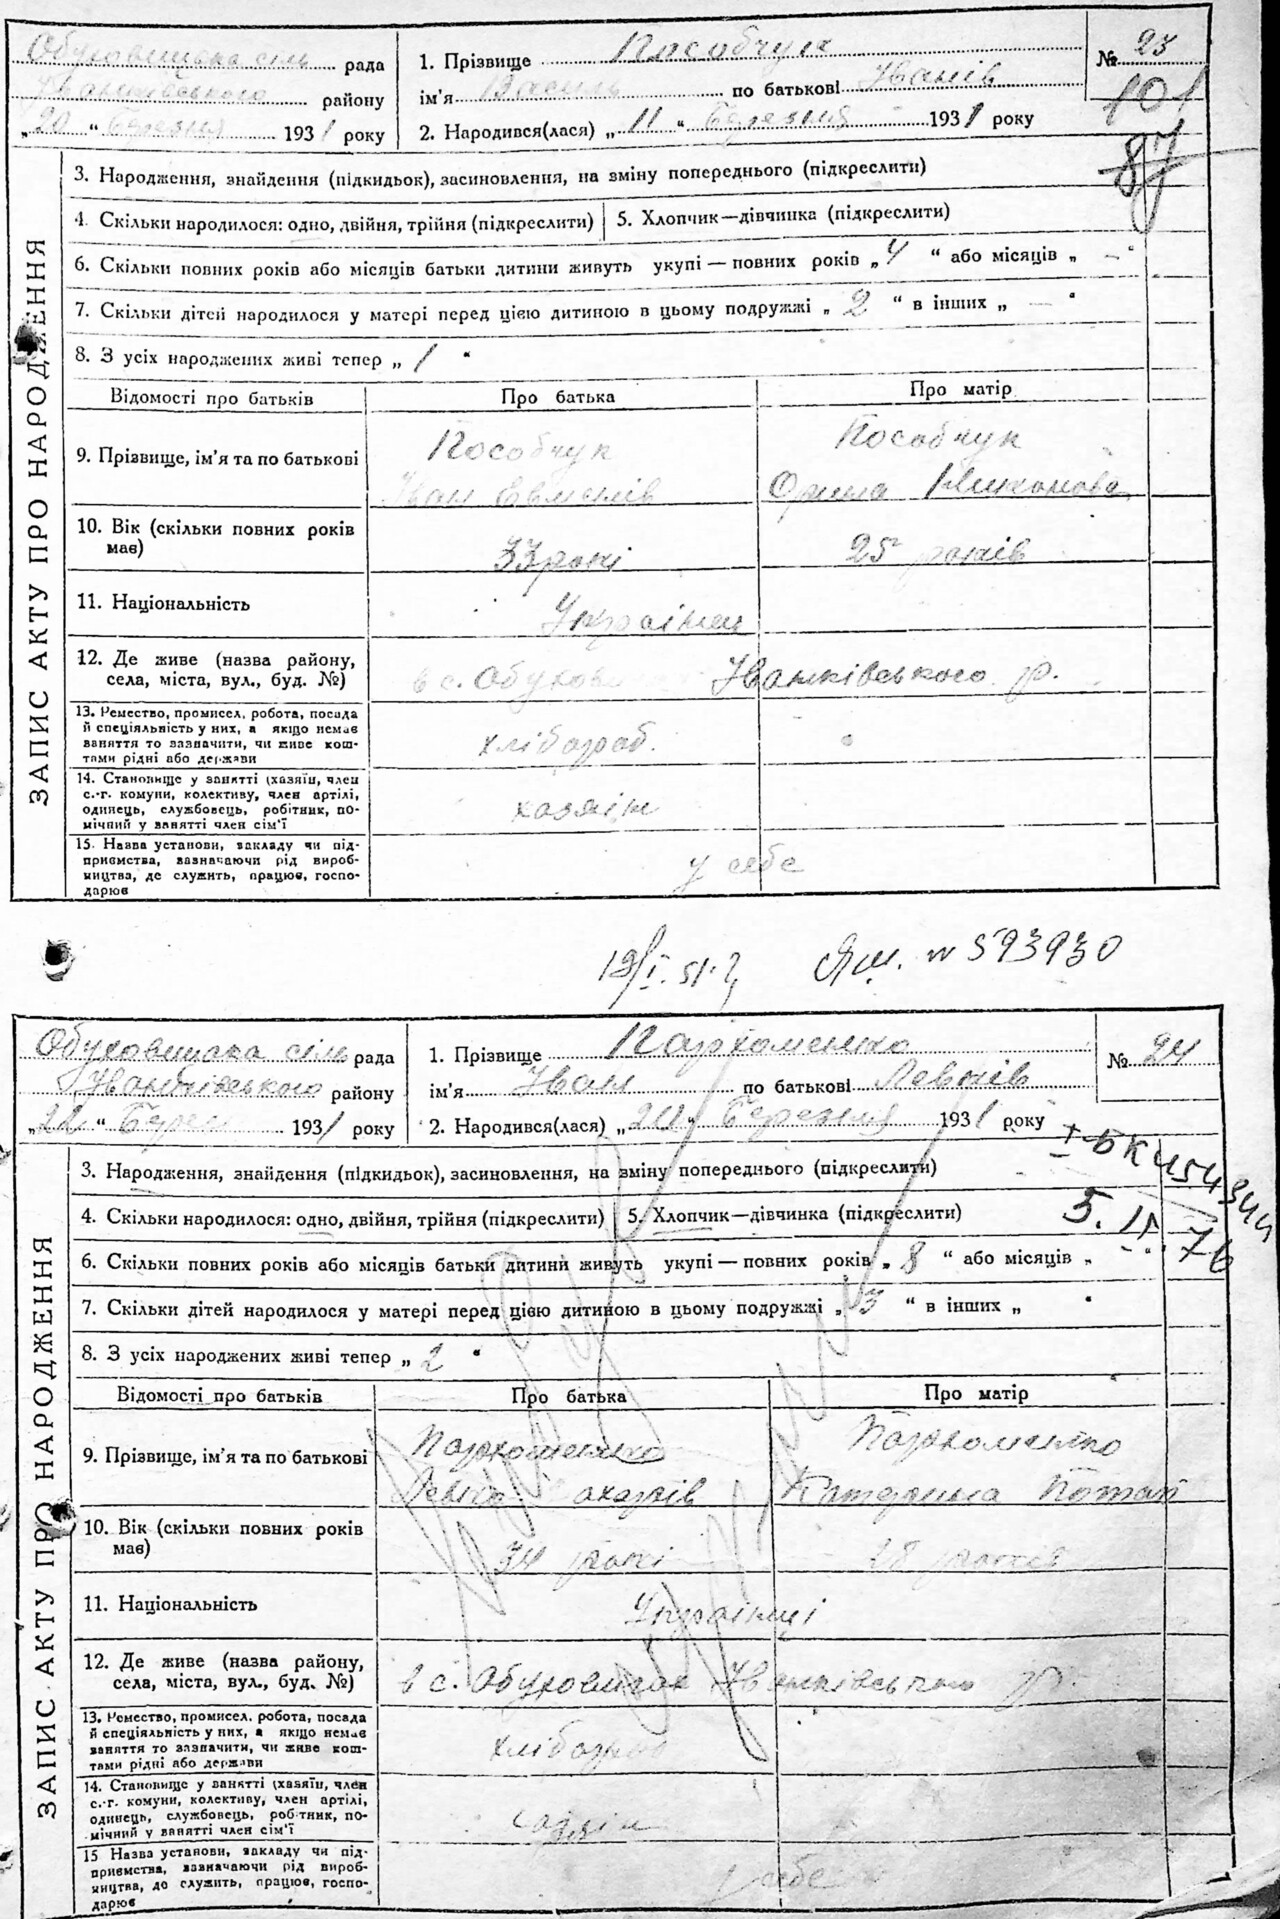 Обуховицька сіль рада
Іванківського району
„20“ Березня 1931 року
1. Прізвище Пособчук
ім'я Василь по батькові Іванів
2. Народився(лася) „11“ Березня 1931 року
№ 23
101
87
ЗАПИС АКТУ ПРО НАРОДЖЕННЯ
3. Народження, знайдення (підкидьок), засиновлення, на зміну попереднього (підкреслити)
4. Скільки народилося: одно, двійня, трійня (підкреслити) 5. Хлопчик—дівчинка (підкреслити)
6. Скільки повних років або місяців батьки дитини живуть укупі — повних років „4“ або місяців „—“
7. Скільки дітей народилося у матері перед цією дитиною в цьому подружжі „2“ в інших „—“
8. З усіх народжених живі тепер „1“
Відомості про батьків Про батька Про матір
9. Прізвище, ім'я та по батькові
Пособчук Пособчук
Іван Орина
10. Вік (скільки повних років має) 33 рокі 25 років
11. Національність Українці
12. Де живе (назва району,
села, міста, вул., буд. №) в с. Обухов Іванківського р.
13. Ремество, промисел, робота, посада
й спеціяльність у них, а якщо немає
заняття то зазначити, чи живе кош-
тами рідні або держави
хлібороб.
14. Становище у занятті (хазяїн, член
с.-г. комуни, колективу, член артілі,
одинець, службовець, робітник, по-
мічний у занятті член сім'ї
хазяїн
15. Назва установи, закладу чи під-
приємства, зазначаючи рід вироб-
ництва, де служить, працює, госпо-
дарює
у себе
№ 593930
Обуховицька сіль рада
Іванківського району
„22“ Берез 1931 року
1. Прізвище Пархоменко
ім'я Іван по батькові Левків
2. Народився(лася) „20“ Березня 1931 року
№ 24
5. II. 76
ЗАПИС АКТУ ПРО НАРОДЖЕННЯ
3. Народження, знайдення (підкидьок), засиновлення, на зміну попереднього (підкреслити)
4. Скільки народилося: одно, двійня, трійня (підкреслити) 5. Хлопчик—дівчинка (підкреслити)
6. Скільки повних років або місяців батьки дитини живуть укупі — повних років „8“ або місяців „
7. Скільки дітей народилося у матері перед цією дитиною в цьому подружжі „3“ в інших „ “
8. З усіх народжених живі тепер „2“
Відомості про батьків Про батька Про матір
9. Прізвище, ім'я та по батькові
Пархоменко Пархоменко
Левко Катерина Потап
10. Вік (скільки повних років має) 34 рокі 28 років
11. Національність Українці
12. Де живе (назва району,
села, міста, вул., буд. №) в с. Обуховичах Іванківського р.
13. Ремество, промисел, робота, посада
й спеціяльність у них, а якщо немає
заняття то зазначити, чи живе кош-
тами рідні або держави
хлібороб
14. Становище у занятті (хазяїн, член
с.-г. комуни, колективу, член артілі,
одинець, службовець, робітник, по-
мічний у занятті член сім'ї
хазяїн
15 Назва установи, закладу чи під-
приємства, зазначаючи рід вироб-
ництва, до служить, працює, госпо-
дарює
у себе